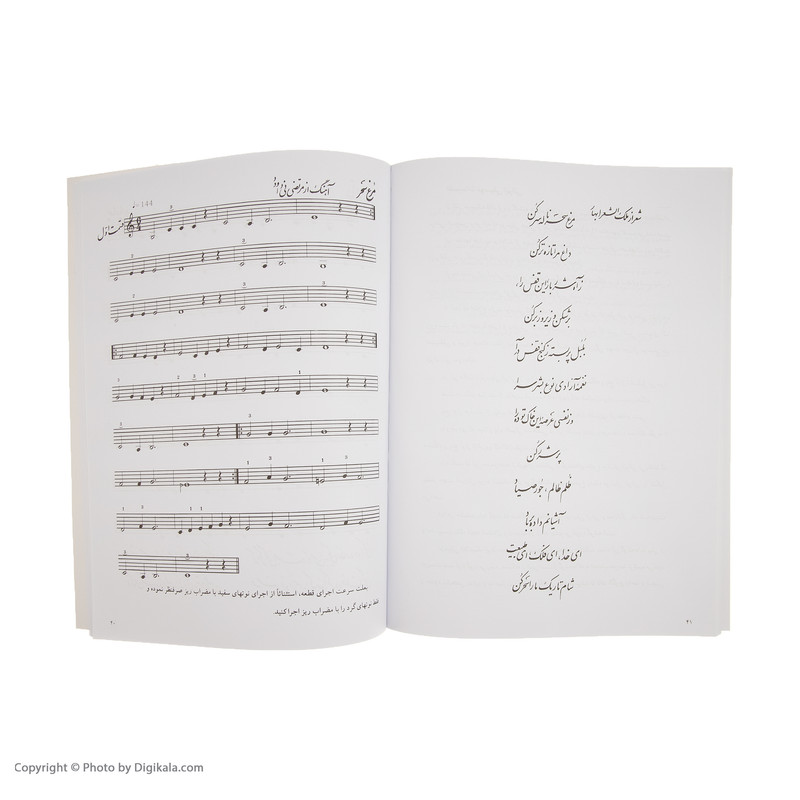 مرغ سحر آهنگ از مرتضی نی داود
♩=144
قسمت اول
بعلت سرعت اجرای قطعه، استثنائاً از اجرای نوتهای سفید با مضراب ریز صرفنظر نموده و
فقط نوتهای گرد را با مضراب ریز اجرا کنید.
۴۰
شعر از ملک الشعرا بهار
مرغ سحر ناله سر کن
داغ مرا تازه تر کن
ز آه شرر بار این قفس را،
برشکن و زیر و زبر کن
بلبل پر بسته ز کنج قفس درآ
نغمه آزادی نوع بشر سرا
وز نفسی عرصه این خاک توده را
پر شرر کن
ظلم ظالم، جور صیاد
آشیانم داده بر باد
ای خدا، ای فلک ای طبیعت
شام تاریک ما را سحر کن
۴۱
Copyright © Photo by Digikala.com